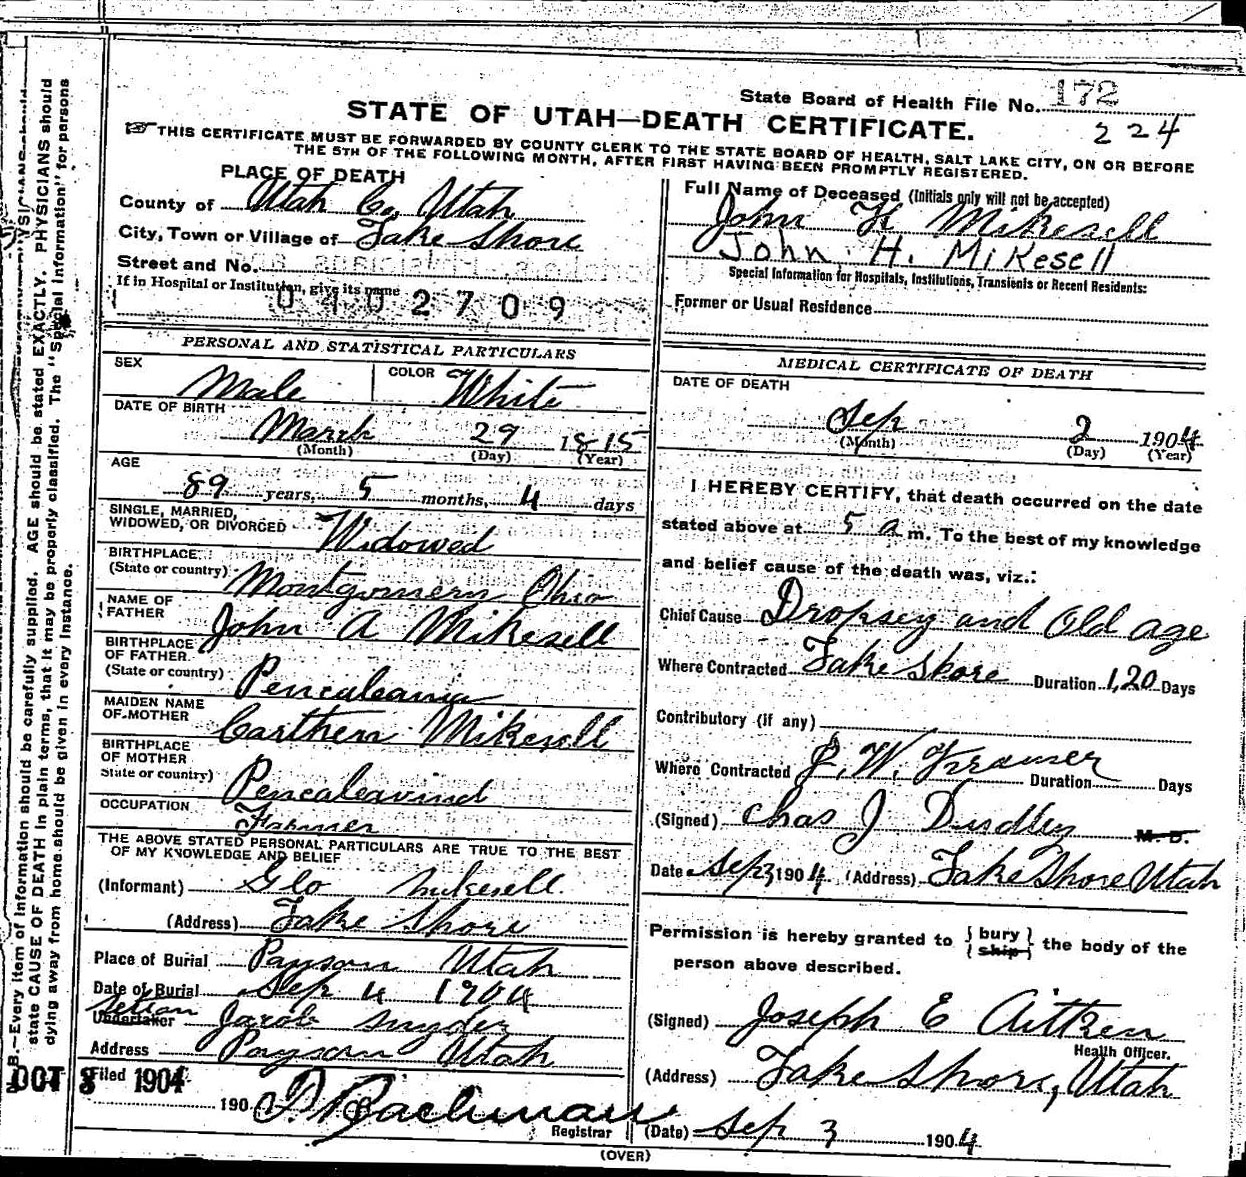 State Board of Health File No. 172
224
STATE OF UTAH—DEATH CERTIFICATE.
THIS CERTIFICATE MUST BE FORWARDED BY COUNTY CLERK TO THE STATE BOARD OF HEALTH, SALT LAKE CITY, ON OR BEFORE
THE 5TH OF THE FOLLOWING MONTH, AFTER FIRST HAVING BEEN PROMPTLY REGISTERED.
PLACE OF DEATH
County of Utah Co, Utah
City, Town or Village of Lake Shore
Street and No.
If in Hospital or Institution, give its name
0402709
Full Name of Deceased (Initials only will not be accepted)
John H Mikesell
John H. Mikesell
Special Information for Hospitals, Institutions, Transients or Recent Residents:
Former or Usual Residence
PERSONAL AND STATISTICAL PARTICULARS
SEX Male COLOR White
DATE OF BIRTH
March 29 1815
(Month) (Day) (Year)
AGE
89 years, 5 months, 4 days
SINGLE, MARRIED,
WIDOWED, OR DIVORCED Widowed
BIRTHPLACE
(State or country) Montgomern Ohio
NAME OF
FATHER John A Mikesell
BIRTHPLACE
OF FATHER
(State or country) Pencaleania
MAIDEN NAME
OF MOTHER Carthern Mikesell
BIRTHPLACE
OF MOTHER
State or country) Pencaleavind
OCCUPATION Farmer
THE ABOVE STATED PERSONAL PARTICULARS ARE TRUE TO THE BEST
OF MY KNOWLEDGE AND BELIEF
(Informant) Geo Mikesell.
(Address) Lake Shore
Place of Burial Payson Utah
Date of Burial Sep 4 1904
Sexton
Undertaker Jacob Snyder
Address Payson Utah
OCT 8 Filed 1904
190
Registrar
MEDICAL CERTIFICATE OF DEATH
DATE OF DEATH
Sep 2 1904
(Month) (Day) (Year)
I HEREBY CERTIFY, that death occurred on the date
stated above at 5 a m. To the best of my knowledge
and belief cause of the death was, viz.:
Chief Cause Dropsey and Old age
Where Contracted Lake Shore Duration 1,20 Days
Contributory (if any)
Where Contracted J. W. Duration Days
(Signed) Chas J Dudley M. D.
Date Sep 3 1904 (Address) Lake Shore Utah
Permission is hereby granted to { bury } the body of the
{ ship }
person above described.
(Signed) Joseph E Aitken
Health Officer.
(Address) Lake Shore, Utah
(Date) Sep 3 1904
(OVER)
N. B.—Every item of information should be carefully supplied. AGE should be stated EXACTLY. PHYSICIANS should
state CAUSE OF DEATH in plain terms, that it may be properly classified. The "Special Information" for persons
dying away from home should be given in every instance.